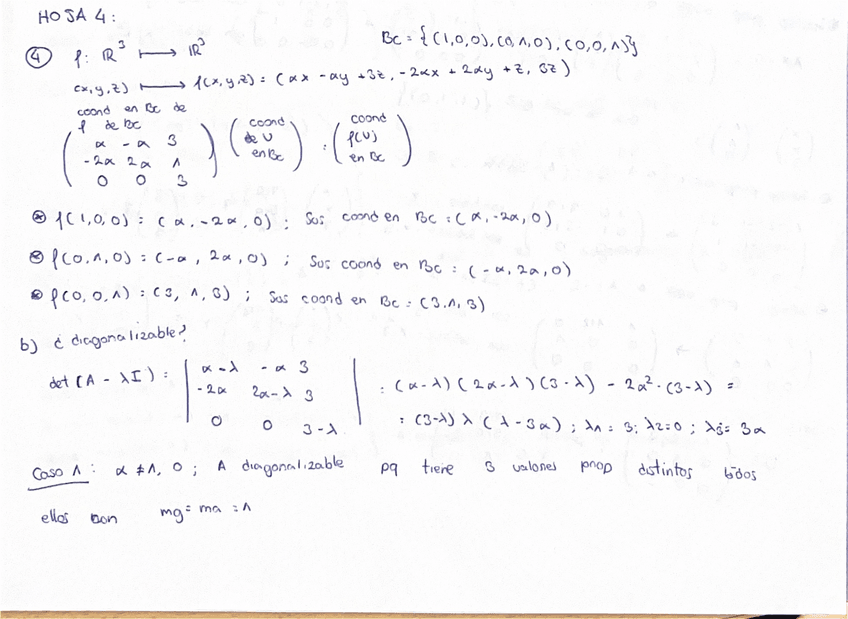 HOJA 4:
Bc = {(1,0,0), (0,1,0), (0,0,1)}
④ f: ℝ³ ⟼ ℝ³
(x,y,z) ⟼ f(x,y,z) = (αx - αy + 3z, -2αx + 2αy + z, 3z)
coord en Bc de
f de Bc
( α -α 3 ) ( coord ) = ( coord )
( -2α 2α 1 ) ( de U ) ( f(U) )
( 0 0 3 ) ( en Bc ) ( en Bc )
⊛ f(1,0,0) = (α, -2α, 0) ; Sus coord en Bc = (α, -2α, 0)
⊛ f(0,1,0) = (-α, 2α, 0) ; Sus coord en Bc = (-α, 2α, 0)
⊛ f(0,0,1) = (3, 1, 3) ; Sus coord en Bc = (3, 1, 3)
b) ¿ diagonalizable?
det (A - λI) = | α-λ -α 3 | = (α-λ)(2α-λ)(3-λ) - 2α²·(3-λ) =
| -2α 2α-λ 3 |
| 0 0 3-λ | = (3-λ) λ (λ-3α) ; λ1 = 3; λ2=0 ; λ3= 3α
Caso 1: α ≠ 1, 0 ; A diagonalizable pq tiene 3 valores prop distintos todos
ellos con mg = ma = 1